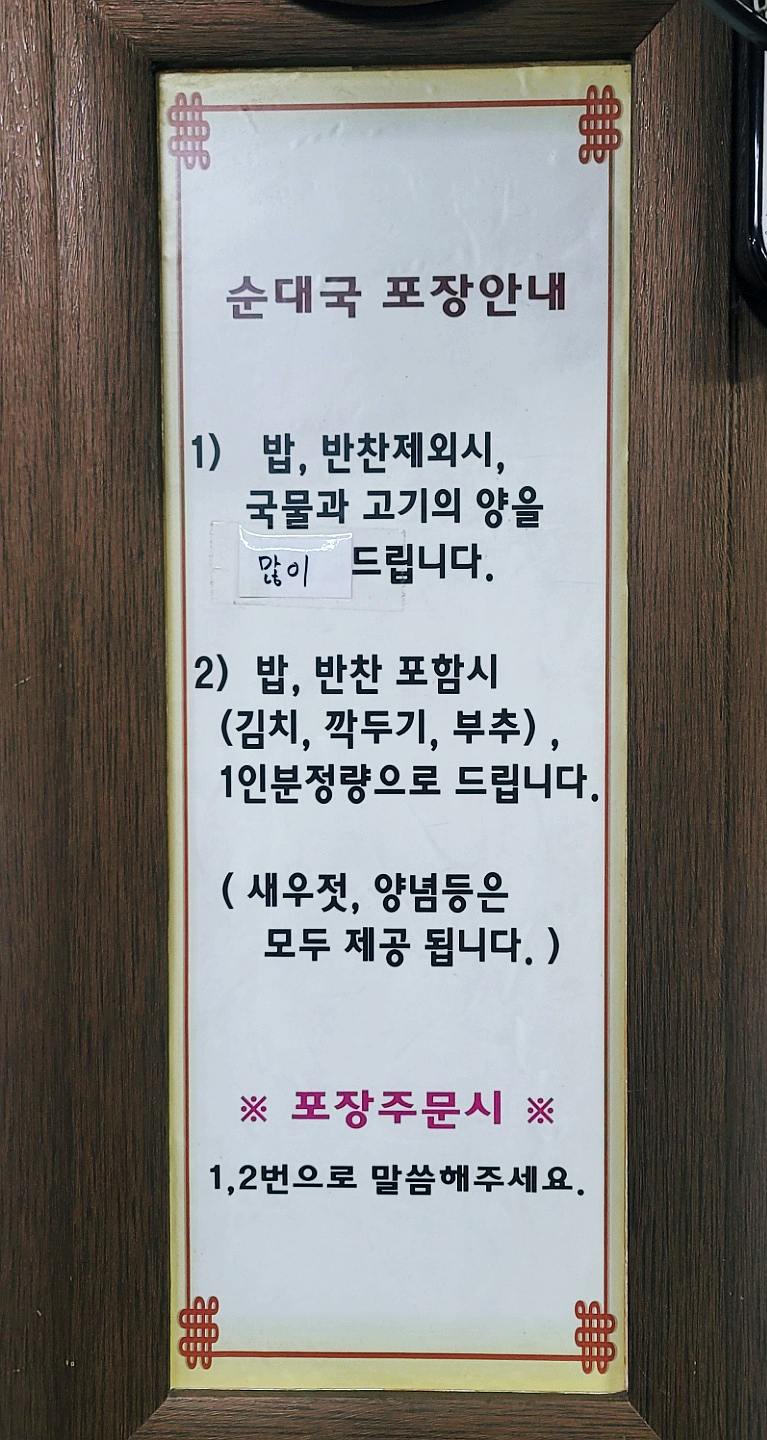 순대국 포장안내
1) 밥, 반찬제외시,
국물과 고기의 양을
많이 드립니다.
2) 밥, 반찬 포함시
(김치, 깍두기, 부추) ,
1인분정량으로 드립니다.
( 새우젓, 양념등은
모두 제공 됩니다. )
※ 포장주문시 ※
1,2번으로 말씀해주세요.